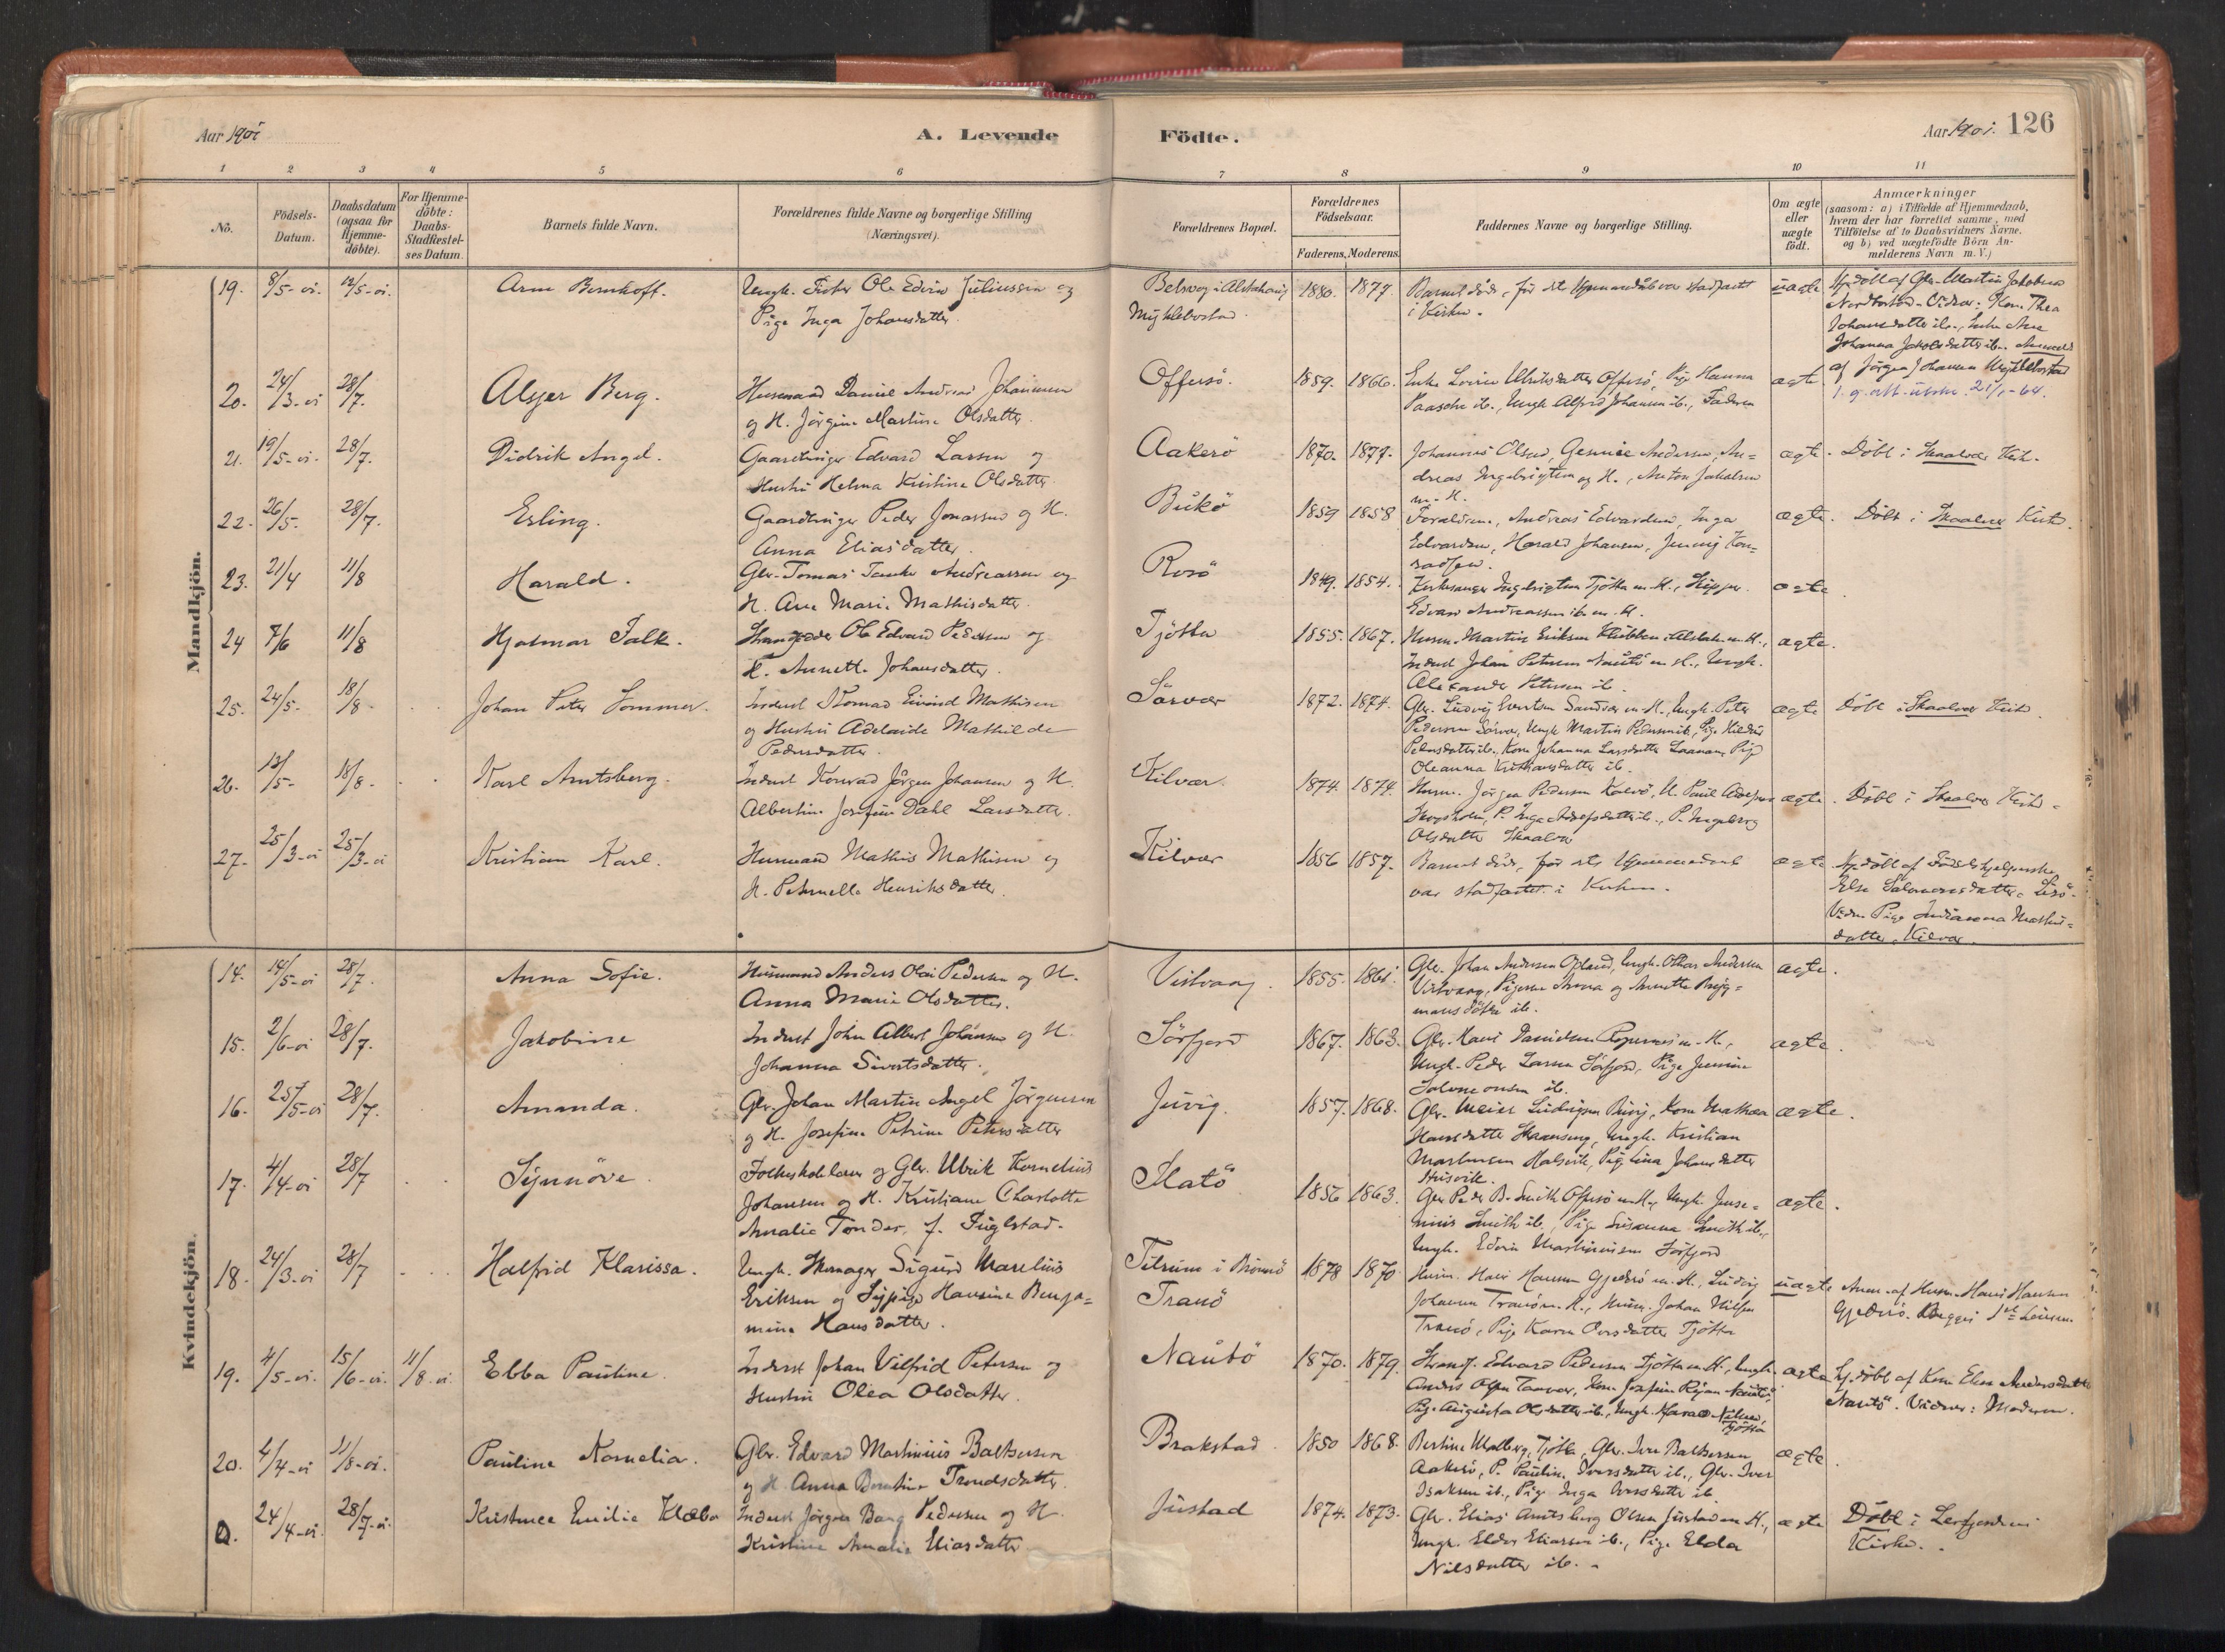 Aar 1901
A. Levende
Födte.
Aar 1901.
126
1 2 3 4 5 6 7 8 9 10 11
No.
Födsels-
Datum.
Daabsdatum
(ogsaa for
Hjemme-
döbte).
For Hjemme-
döbte:
Daabs-
Stadfæstel-
ses Datum.
Barnets fulde Navn.
Forældrenes fulde Navne og borgerlige Stilling
(Næringsvei).
Forældrenes Bopæl.
Forældrenes
Födselsaar.
Faderens, Moderens.
Faddernes Navne og borgerlige Stilling.
Om ægte
eller
uægte
født.
Anmærkninger
(saasom: a) i Tilfælde af Hjemmedaab,
hvem der har forrettet samme, med
Tilföielse af to Daabsvidners Navne,
og b) ved uægtefödte Börn An-
melderens Navn m. V.)
Mandkjön.
19. 8/5-01. 12/5-01. Arne Bernhoff.
Ungk. Fisker Ole Edvin Juliussen og
Pige Inga Johansdatter.
Belsvog i Alstahaug
Myklebostad.
1880. 1877.
Barnet döde, før dets Hjemmedaab var stadfæstet
i Kirken.
uægte
Hj.döbt af Gbr. Martin Jakobsen
Nordbostad. Vidner: Kone Thea
Johansdatter ib., Enke Ane
Johanna Jakobsdatter ib. Anmeldt
af Jörgen Johansen Myklebostad
20. 24/3-01 28/7. Alsger Berg.
Husmand Daniel Andreas Johannesen
og H. Jörgine Martine Olsdatter.
Offersö. 1859. 1866.
Enke Lovise Ulriksdatter Offersö, Pige Hanna
Paasche ib., Ungk Alfred Johansen ib., Faderen
ægte.
1. g. att. utskr. 21/1-64.
21. 19/5-01. 28/7. Didrik Angel.
Gaardbruger Edvard Larsen og
Hustru Helma Kristine Olsdatter.
Aakerö 1870. 1877.
Johannes Olsen, Andersen, An-
dreas Ingebrigtsen og H., Anton Jakobsen
m. H.
ægte. Döbt i Skaalvær Kirk.
22. 26/5. 28/7. Erling.
Gaardbruger Peder Jonassen og H.
Anna Eliasdatter.
Bukö 1859 1858
Forældrene, Andreas Edvardsen, Inga
Edvardsen, Harald Johansen, Jenny Kon-
radsen.
ægte. Döbt i Skaalvær Kirk.
23. 21/4 11/8 Harald.
Gbr. Tomas Tanke Andreassen og
H. Ane Marie Mathisdatter.
Rosö 1849. 1854.
Kirkesanger Ingebrigtsen Tjötta m. H., Skipper
Edvard Andreassen ib m. H.
ægte.
24 7/6 11/8 Hjalmar Falk.
Strandsidder Ole Edvard Pedersen og
H. Annette Johansdatter.
Tjötta 1855. 1867.
Husm. Martin Eriksen Klubben i Alstah. m. H.,
Inderst Johan Petersen Nautö m. H., Ungk.
Alexander Petersen ib.
ægte.
25. 24/5- 18/8- Johan Peter Sommer.
Inderst Thomas Eivind Mathisen
og Hustru Adelaide Mathilde
Pedersdatter.
Sörvær 1872. 1874.
Gbr. Ludvig Evertsen Sandvær m. H., Ungk. Peter
Pedersen Sörvær, Ungk Martin Pedersen ib, Pige Hilda
Pedersdatter ib., Kone Johanna Larsdatter Laanan, Pige
Oleanna Kristiansdatter ib.
ægte Döbt i Skaalvær Kirk.
26. 13/5- 18/8- Karl Arntsberg.
Inderst Konrad Jörgen Johansen og H.
Albertine Josefine Dahl Larsdatter.
Kilvær. 1874. 1874.
Husm. Jörgen Pedersen Kalvö, U. Paul Adolfsen
Skogsholm, P. Inga Adolfsdatter ib., P. Ingeborg
Olsdatter Skaalvær
ægte. Döbt i Skaalvær Kirk.
27. 25/3-01 25/3-01 Kristian Karl.
Husmand Mathis Mathisen og
H. Petrnella Henriksdatter.
Kilvær 1856 1857.
Barnet döde, før dets Hjemmedaab
var stadfæstet i Kirken.
ægte Hj.döbt af Födselshjælperske
Else Salomonsdatter,
Vidne Pige Indianna Mathis-
datter, Kilvær.
Kvindekjön.
14. 14/5-01 28/7. Anna Sofie.
Husmand Anders Olai Pedersen og H.
Anna Marie Olsdatter.
Visvaag. 1855. 1861.
Gbr. Johan Andersen Opland, Ungk. Othar Andersen
Visvaag, Pigerne Anna og Annette Bryg-
mansdöttre ib.
ægte.
15. 2/6-01 28/7. Jakobine
Inderst John Albert Johansen og H.
Johanna Sivertsdatter.
Sörfjord 1867. 1863.
Gbr. Hans Danielsen m. H.,
Ungk. Peder Larsen Sörfjord, Pige Jensine
Salomonsen ib.
ægte.
16. 25/5-01 28/7. Amanda.
Gbr. Johan Martin Angel Jörgensen
og H. Josefine Petrine Petersdatter
Juvig. 1857. 1868.
Gbr. Meier Ludvigsen Buvig, Kone Mathea
Hansdatter, Ungk. Kristian
Martinsen Halsvik, Pige Lina Johansdatter
Husvik.
ægte.
17. 4/4-01 28/7 Synnöve.
Folkeskolelærer og Gbr. Ulrik Kornelius
Johansen og H. Kristiane Charlotte
Amalie Tönder, f. Fuglstad.
Flatö 1856 1863.
Gbr Peder B. Smith Offersö m. H., Ungk. Jense-
nius Smith ib., Pige Susanna Smith ib.,
Ungk. Edvin Martinussen Sörfjord
ægte.
18. 24/3-01 28/7 Halfrid Klarissa.
Ungk. Skomager Sigurd Marelius
Eriksen og Sypige Hansine Benja-
mine Hansdatter.
Tilrum i Brönnö
Tranö
1878 1870
Husm. Hans Hansen Gjæderö m. H., Ludvig
Johansen Tranö m. H., Husm. Johan Nilsen
Tranö, Pige Karen Oversdatter Tjötta
uægte Anm. af Husm. Hans Hansen
Gjæderö. Begges 1ste Leiersm.
19. 4/5-01. 15/6-01. 11/8-01. Ebba Pauline.
Inderst Johan Vilfrid Petersen og
Hustru Olea Olsdatter.
Nautö 1870. 1879.
Strands. Edvard Pedersen Tjötta m. H., Ungk.
Anders Olsen, Kone Josefine Nautö,
Pige Augusta Olsdatter ib., Ungk. Harald Nilsen,
Tjötta
ægte Hj.döbt af Kone Elen Andersdatter
Nautö. Vidner: Moderen.
20. 4/4-01 11/8-01. Pauline Kornelia.
Gbr. Edvard Martinius Baltsersen
og H. Anna Berntine Trondsdatter.
Brakstad. 1850 1868.
Bertine Malberg, Tjötta, Gbr. Iver Baltsersen
Aakerö, P. Pauline Iversdatter ib., Gbr. Iver
Isaksen ib., Pige Inga Iversdatter ib.
ægte.
0. 24/4-01. 28/7-01. Kristence Emilie Klæbo
Inderst Jörgen Bang Pedersen og H.
Kristine Amalie Eliasdatter
Justad 1874. 1873.
Gbr. Elias Arntsberg Olsen Justad m. H.,
Ungk. Eldor Eliassen ib., Pige Elda
Nilsdatter ib.
ægte Döbt i Leirfjordens
Kirke.